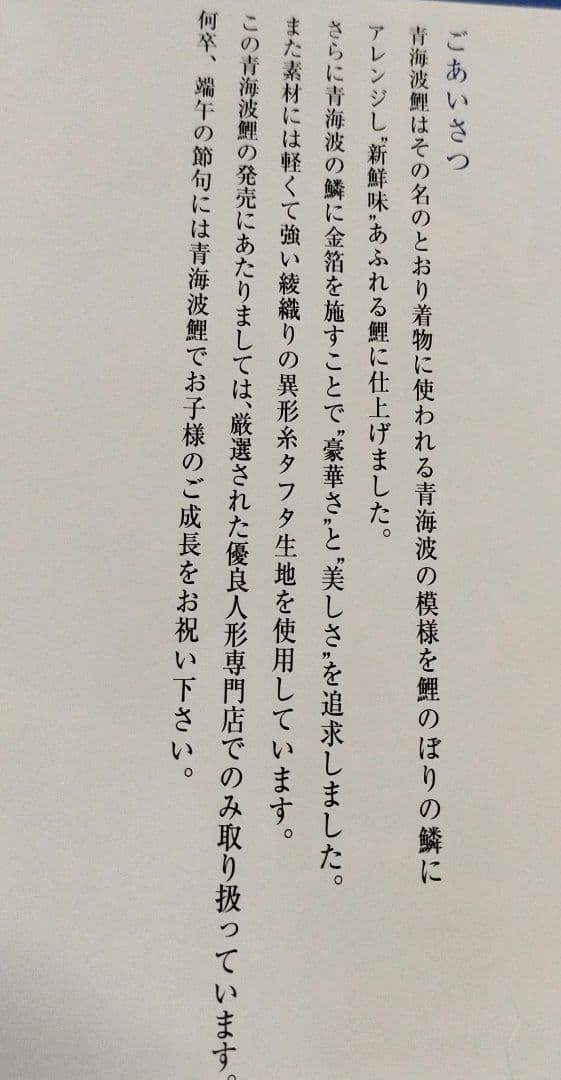 ごあいさつ
青海波鯉はその名のとおり着物に使われる青海波の模様を鯉のぼりの鱗に
アレンジし”新鮮味”あふれる鯉に仕上げました。
さらに青海波の鱗に金箔を施すことで”豪華さ”と”美しさ”を追求しました。
また素材には軽くて強い綾織りの異形糸タフタ生地を使用しています。
この青海波鯉の発売にあたりましては、厳選された優良人形専門店でのみ取り扱っています。
何卒、端午の節句には青海波鯉でお子様のご成長をお祝い下さい。